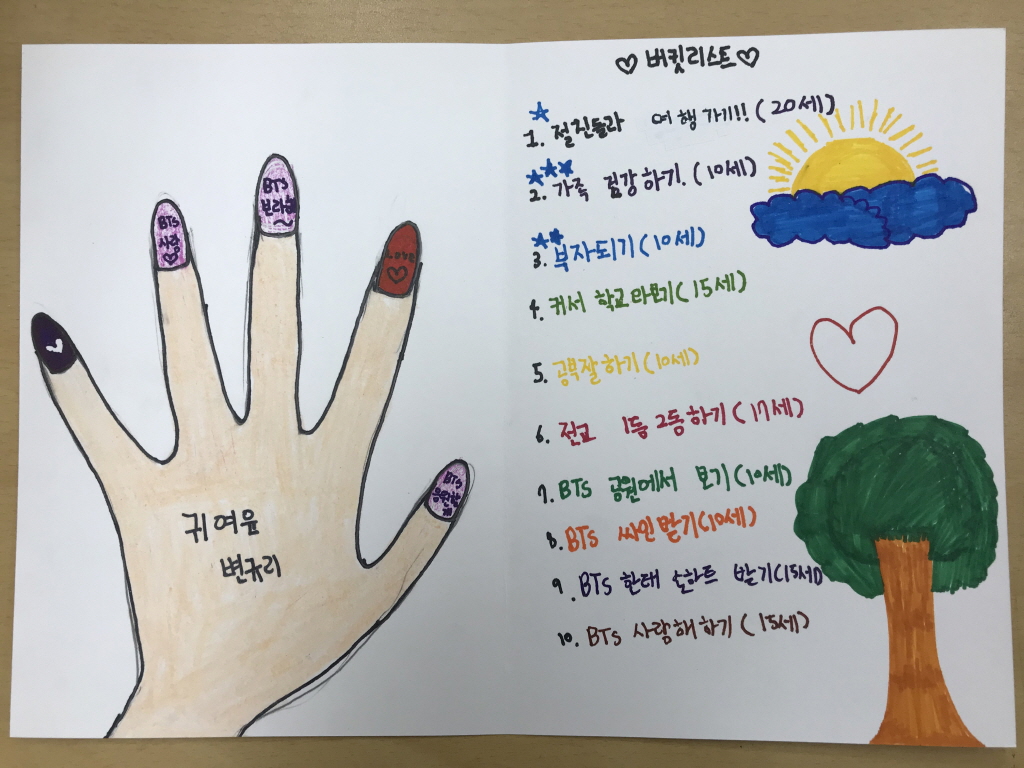 BTS
사랑
♡
BTS
보라해
~
LOVE
♡
BTS
귀여움
변규리
♡ 버킷리스트 ♡
1. 절친들라 여행가기!! (20세)
2. 가족 검강하기. (10세)
3. 부자되기 (10세)
4. 커서 학교 다모기 (15세)
5. 공부잘하기 (10세)
6. 전교 1등 2등하기 (17세)
7. BTS 공원에서 보기 (10세)
8. BTS 싸인 받기 (10세)
9. BTS 한태 손하트 받기 (15세)
10. BTS 사랑해하기 (15세)